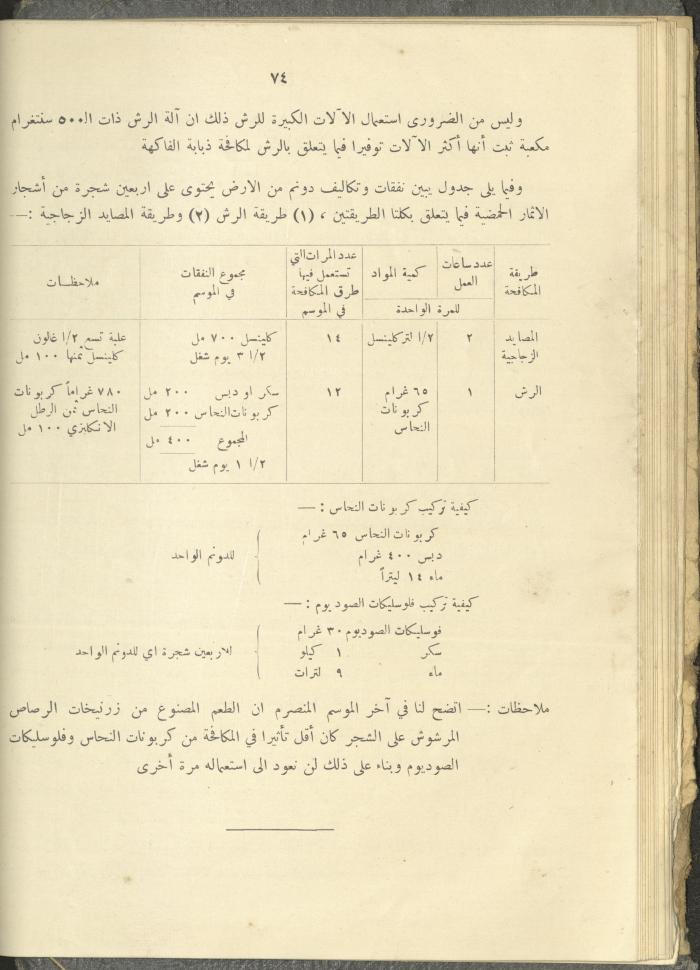 ٧٤
وليس من الضرورى استعمال الآلات الكبيرة للرش ذلك ان آلة الرش ذات الـ٥٠٠ سنتغرام
مكعبة ثبت أنها أكثر الآلات توفيرا فيما يتعلق بالرش لمكافحة ذبابة الفاكهة
وفيما يلى جدول يبين نفقات وتكاليف دونم من الارض يحتوى على اربعين شجرة من أشجار
الاثمار الحمضية فيما يتعلق بكلتا الطريقتين ، (١) طريقة الرش (٢) وطريقة المصايد الزجاجية :—
طريقة المكافحة | عدد ساعات العمل | كمية المواد | للمرة الواحدة | عدد المرات التي تستعمل فيها طرق المكافحة في الموسم | مجموع النفقات في الموسم | ملاحظات
المصايد الزجاجية | ٢ | ٢/١ لتر كلينسل | ١٤ | كلينسل ٧٠٠ مل | علبة تسع ٢/١ غالون
٢/١ ٣ يوم شغل | كلينسل ثمنها ١٠٠ مل
الرش | ١ | ٦٥ غرام كربونات النحاس | ١٢ | سكر او دبس ٢٠٠ مل | ٧٨٠ غراماً كربونات
كربونات النحاس ٢٠٠ مل | النحاس ثمن الرطل
المجموع ٤٠٠ مل | الانكليزي ١٠٠ مل
٢/١ ١ يوم شغل
كيفية تركيب كربونات النحاس :—
كربونات النحاس ٦٥ غرام
دبس ٤٠٠ غرام | للدونم الواحد
ماء ١٤ ليتراً
كيفية تركيب فلوسليكات الصوديوم :—
فوسليكات الصوديوم ٣٠ غرام
سكر ١ كيلو | للاربعين شجرة اي للدونم الواحد
ماء ٩ لترات
ملاحظات :— اتضح لنا في آخر الموسم المنصرم ان الطعم المصنوع من زرنيخات الرصاص
المرشوش على الشجر كان أقل تأثيرا في المكافحة من كربونات النحاس وفلوسليكات
الصوديوم وبناء على ذلك لن نعود الى استعماله مرة أخرى